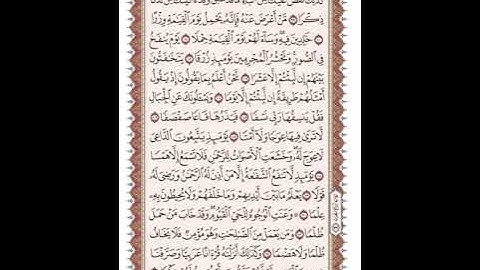 ذِكْرًا ۝ مَّنْ أَعْرَضَ عَنْهُ فَإِنَّهُ يَحْمِلُ يَوْمَ ٱلْقِيَٰمَةِ وِزْرًا
۝ خَٰلِدِينَ فِيهِ وَسَآءَ لَهُمْ يَوْمَ ٱلْقِيَٰمَةِ حِمْلًا ۝ يَوْمَ يُنفَخُ
فِي ٱلصُّورِ وَنَحْشُرُ ٱلْمُجْرِمِينَ يَوْمَئِذٍ زُرْقًا ۝ يَتَخَٰفَتُونَ
بَيْنَهُمْ إِن لَّبِثْتُمْ إِلَّا عَشْرًا ۝ نَّحْنُ أَعْلَمُ بِمَا يَقُولُونَ إِذْ يَقُولُ
أَمْثَلُهُمْ طَرِيقَةً إِن لَّبِثْتُمْ إِلَّا يَوْمًا ۝ وَيَسْـَٔلُونَكَ عَنِ ٱلْجِبَالِ
فَقُلْ يَنسِفُهَا رَبِّي نَسْفًا ۝ فَيَذَرُهَا قَاعًا صَفْصَفًا ۝
لَّا تَرَىٰ فِيهَا عِوَجًا وَلَآ أَمْتًا ۝ يَوْمَئِذٍ يَتَّبِعُونَ ٱلدَّاعِيَ
لَا عِوَجَ لَهُۥ وَخَشَعَتِ ٱلْأَصْوَاتُ لِلرَّحْمَٰنِ فَلَا تَسْمَعُ إِلَّا هَمْسًا
۝ يَوْمَئِذٍ لَّا تَنفَعُ ٱلشَّفَٰعَةُ إِلَّا مَنْ أَذِنَ لَهُ ٱلرَّحْمَٰنُ وَرَضِيَ لَهُۥ
قَوْلًا ۝ يَعْلَمُ مَا بَيْنَ أَيْدِيهِمْ وَمَا خَلْفَهُمْ وَلَا يُحِيطُونَ بِهِۦ
عِلْمًا ۝ وَعَنَتِ ٱلْوُجُوهُ لِلْحَيِّ ٱلْقَيُّومِ وَقَدْ خَابَ مَنْ حَمَلَ
ظُلْمًا ۝ وَمَن يَعْمَلْ مِنَ ٱلصَّٰلِحَٰتِ وَهُوَ مُؤْمِنٌ فَلَا يَخَافُ
ظُلْمًا وَلَا هَضْمًا ۝ وَكَذَٰلِكَ أَنزَلْنَٰهُ قُرْءَانًا عَرَبِيًّا وَصَرَّفْنَا